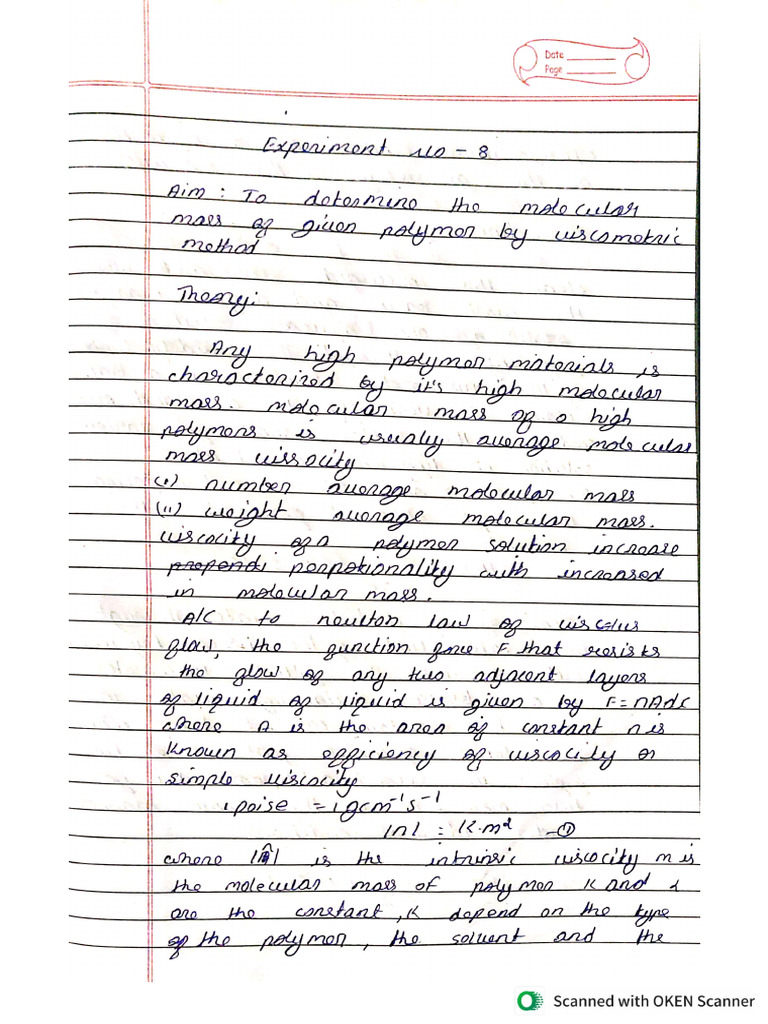 Date
Page
Experiment No - 8
Aim : To determine the molecular
mass of given polymer by viscometric
method
Theory:
Any high polymer materials is
characterized by it's high molecular
mass. molecular mass of a high
polymers is usually average molecular
mass vissocity
(i) number average molecular mass
(ii) weight average molecular mass.
viscocity of a polymer solution increase
porpotionality with increased
in molecular mass.
A/C to neuton law of viscous
flow, the function force F that resists
the flow of any two adjacent layers
of liquid of liquid is given by F = nAdc
where A is the area of constant n is
known as efficiency of viscocity or
simple viscocity
1 poise = 1 gcm⁻¹s⁻¹
|n| = K.m^α - ①
where |n| is the intrinsic viscocity m is
the molecular mass of polymer K and α
are the constant, K depend on the type
of the polymer, the solvent and the
Scanned with OKEN Scanner